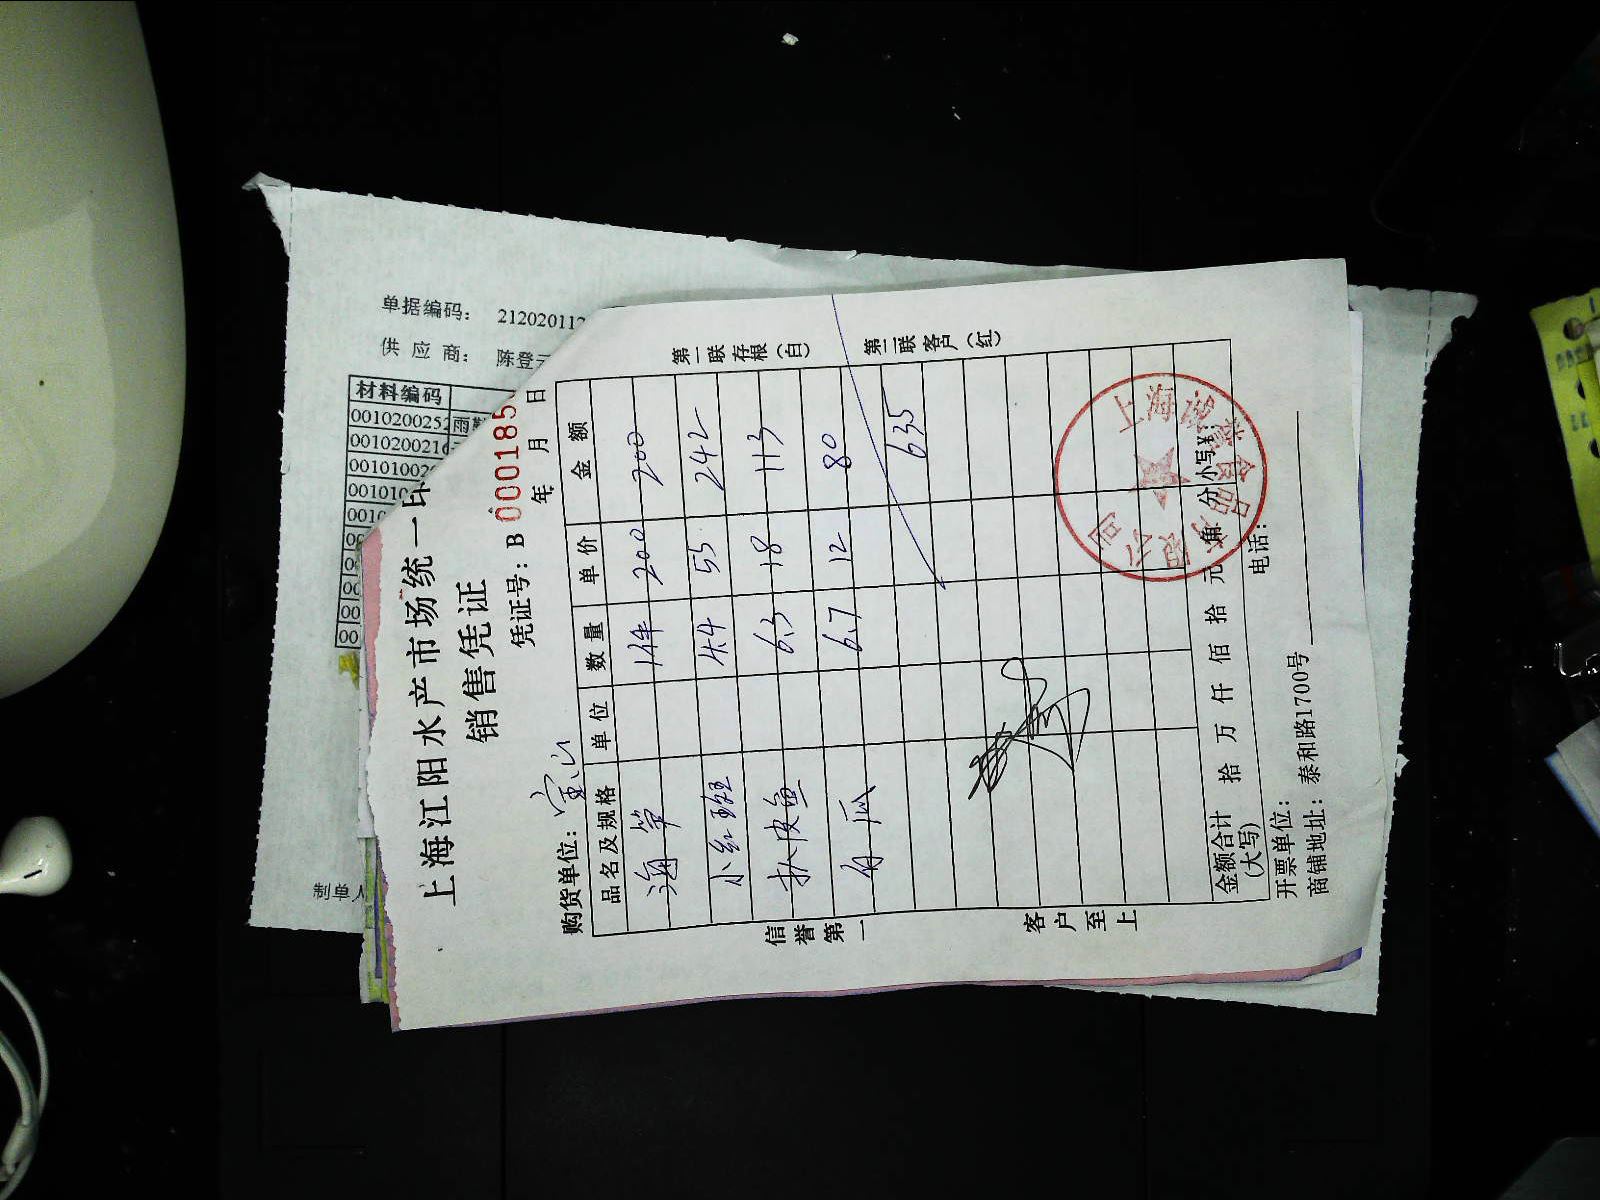 单据编码： 212020112
供 应 商： 陈登
材料编码
0010200252 雨
001020021
00101002
00101
0010
00
00
00
00
00
制单人
上海江阳水产市场统一印
销售凭证
凭证号：B 000185
购货单位：宝山
年 月 日
品名及规格 单位 数量 单价 金额
海笋 1件 200 200
小红斑 4.4 55 242
扒皮鱼 6.3 18 113
白瓜 6.7 12 80
635
金额合计（大写） 拾 万 仟 佰 拾 元 角 分 小写¥：
开票单位： 电话：
商铺地址：泰和路1700号
信誉第一
客户至上
第一联存根（白）
第二联客户（红）
上海
有限公司